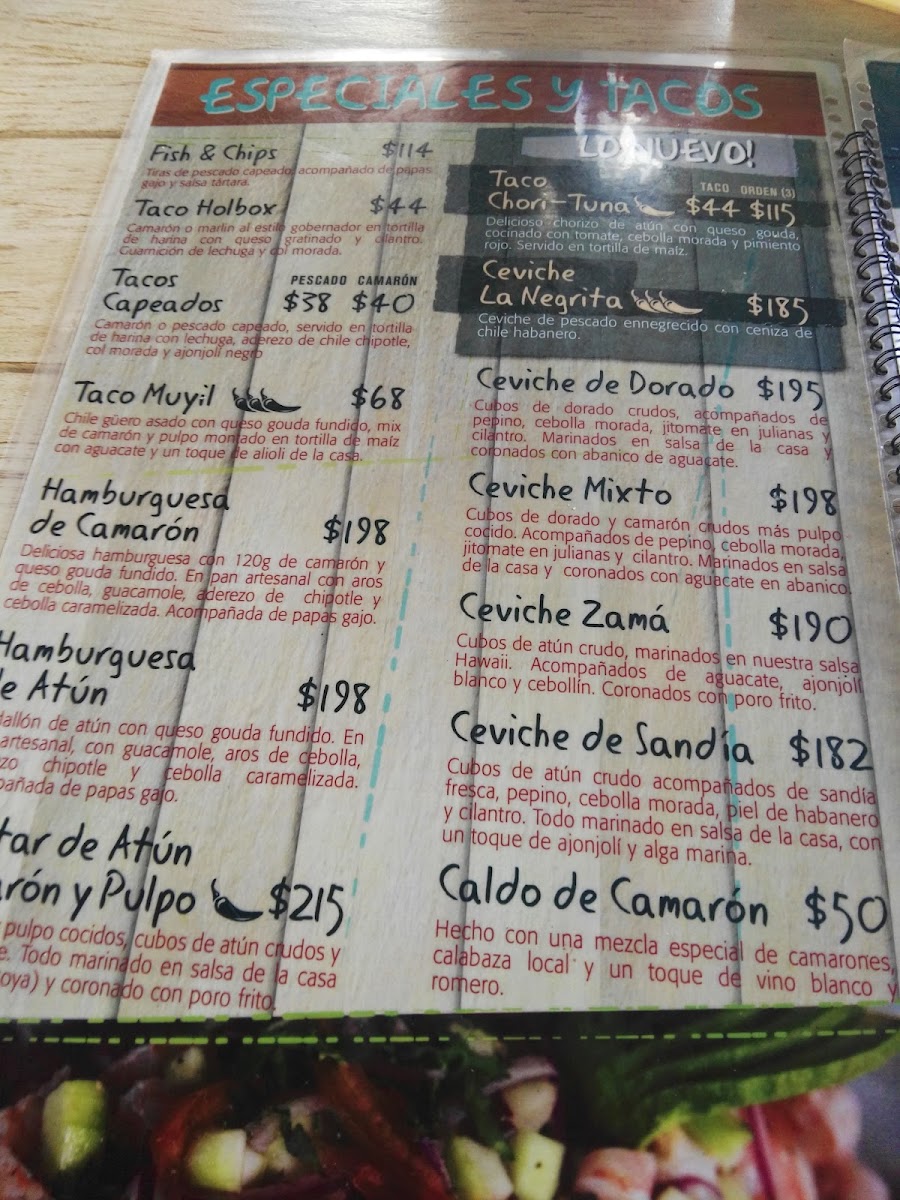 ESPECIALES Y TACOS
Fish & Chips $114
Tiras de pescado capeado, acompañado de papas
gajo y salsa tártara.
Taco Holbox $44
Camarón o marlin al estilo gobernador en tortilla
de harina con queso gratinado y cilantro.
Guarnición de lechuga y col morada.
Tacos PESCADO CAMARÓN
Capeados $38 $40
Camarón o pescado capeado, servido en tortilla
de harina con lechuga, aderezo de chile chipotle,
col morada y ajonjolí negro
Taco Muyil $68
Chile güero asado con queso gouda fundido, mix
de camarón y pulpo montado en tortilla de maíz
con aguacate y un toque de alioli de la casa.
Hamburguesa
de Camarón $198
Deliciosa hamburguesa con 120g de camarón y
queso gouda fundido. En pan artesanal con aros
de cebolla, guacamole, aderezo de chipotle y
cebolla caramelizada. Acompañada de papas gajo.
Hamburguesa
de Atún $198
con queso gouda fundido. En
artesanal, con guacamole, aros de cebolla,
chipotle y cebolla caramelizada.
de papas gajo.
de Atún
y Pulpo $215
pulpo cocidos, cubos de atún crudos y
Todo marinado en salsa de la casa
y coronado con poro frito.
LO NUEVO!
Taco TACO ORDEN (3)
Chori-Tuna $44 $115
Delicioso chorizo de atún con queso gouda,
cocinado con tomate, cebolla morada y pimiento
rojo. Servido en tortilla de maíz.
Ceviche
La Negrita $185
Ceviche de pescado ennegrecido con ceniza de
chile habanero.
Ceviche de Dorado $195
Cubos de dorado crudos, acompañados de
pepino, cebolla morada, jitomate en julianas y
cilantro. Marinados en salsa de la casa y
coronados con abanico de aguacate.
Ceviche Mixto $198
Cubos de dorado y camarón crudos más pulpo
cocido. Acompañados de pepino, cebolla morada,
jitomate en julianas y cilantro. Marinados en salsa
de la casa y coronados con aguacate en abanico.
Ceviche Zamá $190
Cubos de atún crudo, marinados en nuestra salsa
Hawaii. Acompañados de aguacate, ajonjolí
blanco y cebollín. Coronados con poro frito.
Ceviche de Sandía $182
Cubos de atún crudo acompañados de sandía
fresca, pepino, cebolla morada, piel de habanero
y cilantro. Todo marinado en salsa de la casa, con
un toque de ajonjolí y alga marina.
Caldo de Camarón $50
Hecho con una mezcla especial de camarones,
calabaza local y un toque de vino blanco y
romero.